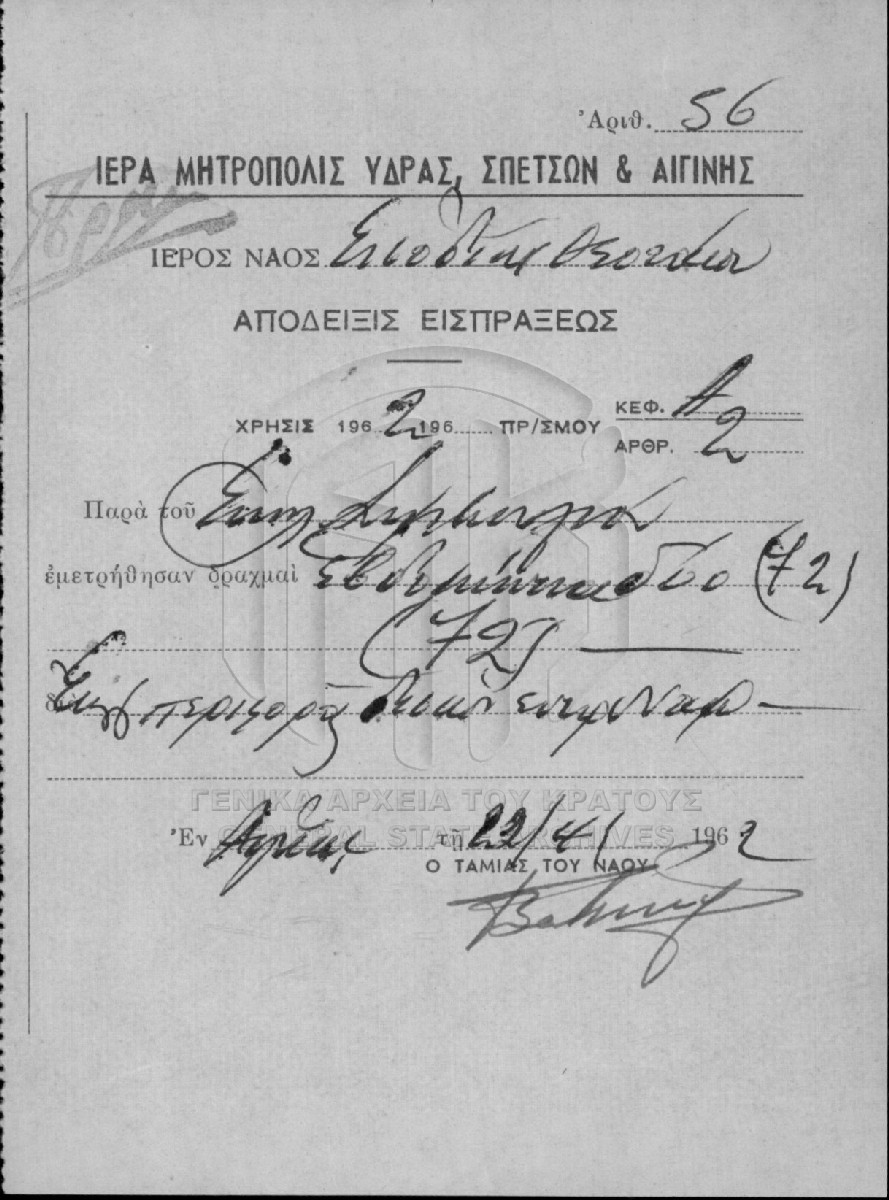 Ἀριθ. 56
ΙΕΡΑ ΜΗΤΡΟΠΟΛΙΣ ΥΔΡΑΣ, ΣΠΕΤΣΩΝ & ΑΙΓΙΝΗΣ
ΙΕΡΟΣ ΝΑΟΣ Εισοδίων Θεοτόκου
ΑΠΟΔΕΙΞΙΣ ΕΙΣΠΡΑΞΕΩΣ
ΧΡΗΣΙΣ 1962 196 ΠΡ/ΣΜΟΥ ΚΕΦ. Α
ΑΡΘΡ. 2
Παρὰ τοῦ
ἐμετρήθησαν δραχμαὶ εβδομήντα δύο (72)
(72)
περιφορᾶς
ΓΕΝΙΚΑ ΑΡΧΕΙΑ ΤΟΥ ΚΡΑΤΟΥΣ
GENERAL STATE ARCHIVES
Ἐν τῇ 22/4/ 1962
Ο ΤΑΜΙΑΣ ΤΟΥ ΝΑΟΥ